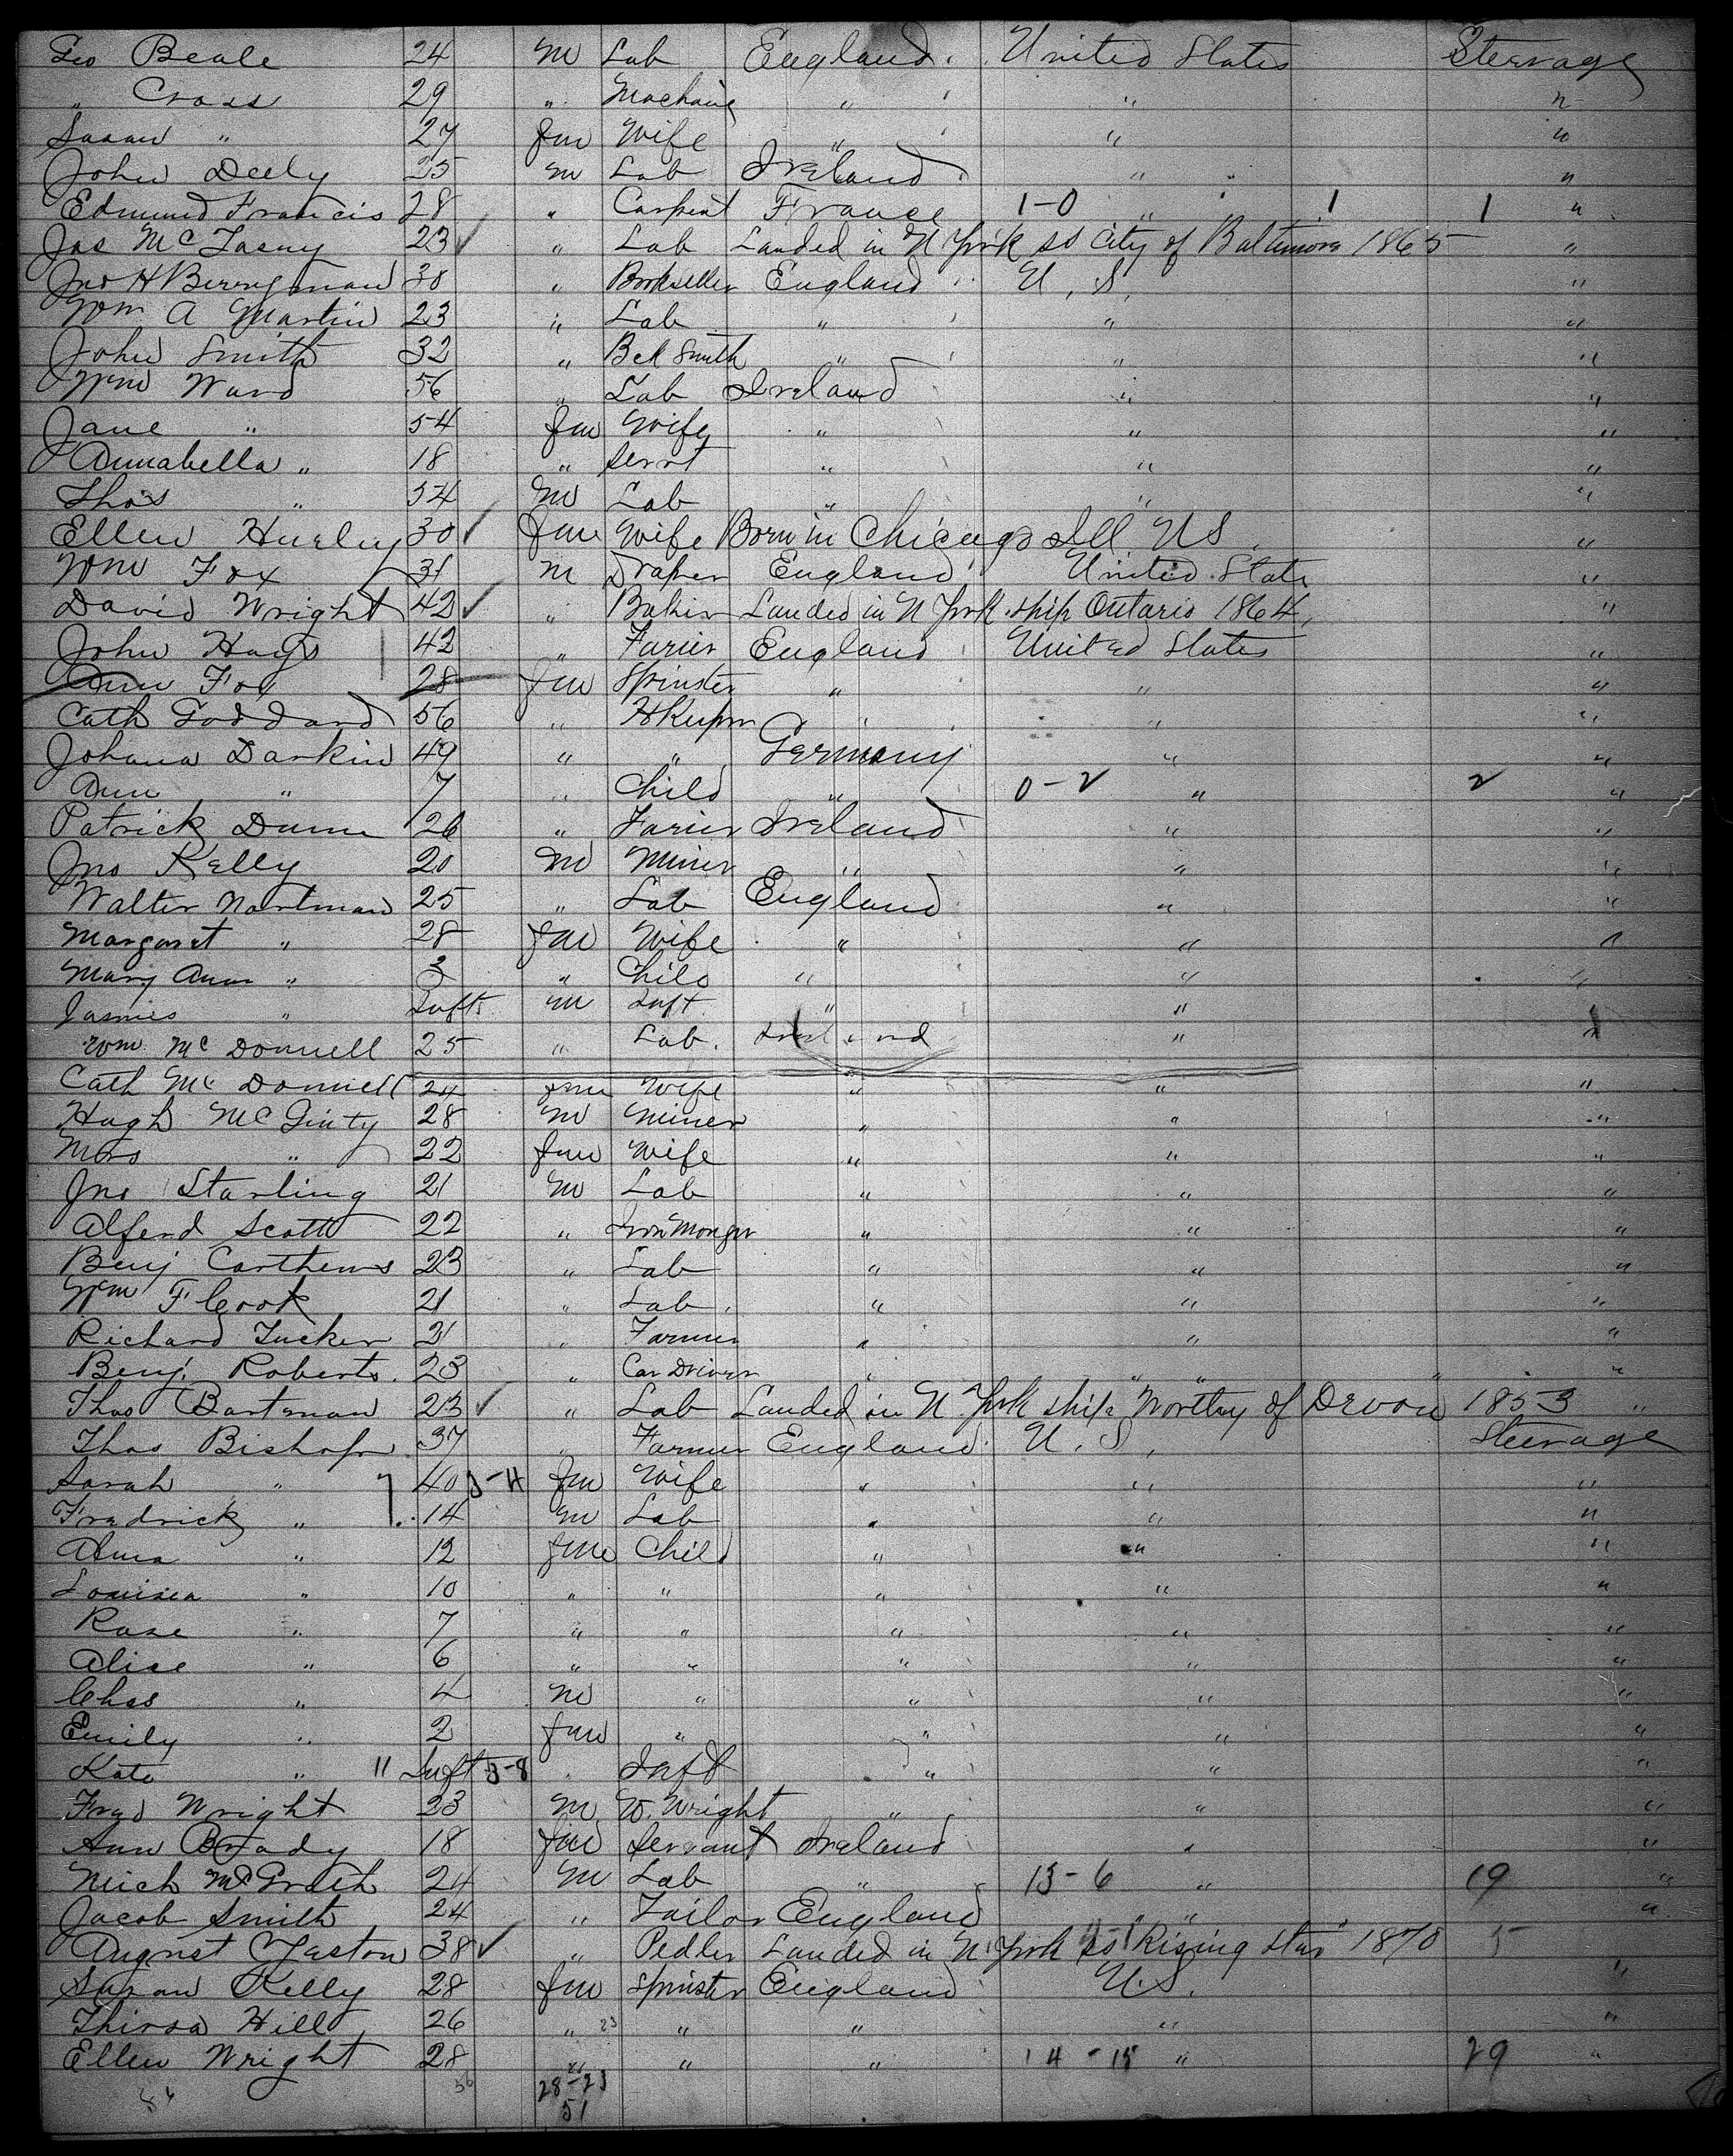 Geo Beale 24 M Lab England United States Steerage
" Cross 29 " " " "
Susan " 27 Fm Wife " " "
John Deely 25 M Lab Ireland " "
Edmund Francis 28 " Carpent France 1-0 " 1 1 "
Jas Mc 23 ✓ " Lab Landed in N York SS City of Baltimore 1865 "
Jno H Berryman 30 " Bookseller England U.S. "
Wm A Martin 23 " Lab " " "
John Smith 32 " Bck Smith " " "
Wm Ward 56 " Lab Ireland " "
Jane " 54 Fm Wife " " "
Annabella " 18 " Servt " " "
Thos " 54 M Lab " " "
Ellen Hurley 30 ✓ Fm Wife Born in Chicago Ill US "
Wm Fox 31 M Draper England United State "
David Wright 42 ✓ " Baker Landed in N York ship Ontario 1864, "
John Hays 42 " England United States "
Ann Fox 28 Fm Spinster " " "
Cath Goddard 56 " HKeepr " " "
Johana Darkin 49 " " Germany " "
Ann " 7 " Child " 0-2 " 2 "
Patrick Dunn 26 " Ireland " "
Jno Kelly 20 M Miner " " "
Walter Nortman 25 " Lab England " "
Margaret " 28 Fm Wife " " "
Mary Ann " 3 " Child " " "
James " Inft M Inft " " "
Wm Mc Donnell 25 " Lab. Ireland " "
Cath Mc Donnell 24 Fm Wife " " "
Hugh McGinty 28 M Miner " " "
Mrs " 22 Fm Wife " " "
Jno Starling 21 M Lab " " "
Alferd Scott 22 " Iron Monger " " "
Benj Carthews 23 " Lab " " "
Wm F Cook 21 " Lab. " " "
Richard Tucker 21 " Farmer " " "
Benj. Roberts. 23 " Car Driver " " " "
Thos Bartman 23 ✓ " Lab Landed in N. York ship Worthy of Devon 1853 "
Thos Bishop 37 " Farmer England U.S. Steerage
Sarah " 40 3-4 Fm Wife " " "
Fredrick " 14 M Lab " " "
Alma " 12 Fm Child " " "
Louisa " 10 " " " " "
Rose " 7 " " " " "
Alice " 6 " " " " "
Chas " 4 M " " " "
Emily " 2 Fm " " " "
Kate " 11 Inft 3-8 " Inft " " "
Fred Wright 23 M W. Wright " " "
Ann Brady 18 Fm Servant Ireland " "
Mich McGrath 24 M Lab " 13-6 " 19 "
Jacob Smith 24 " Tailor England " " "
August 38 ✓ " Pedler Landed in N. York SS "Rising Star" 1870
Susan Kelly 28 Fm Spinster England U.S. "
Thirsa Hill 26 " 23 " " " "
Ellen Wright 28 " " " 14-15 " 29 "
56 28-23
51